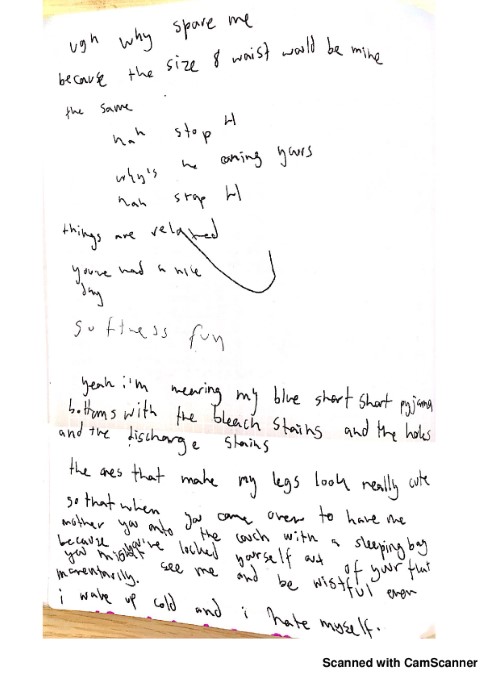 ugh why spare me
because the size 8 waist would be mine
the same
nah stop H
why's he coming yours
nah stop H
things are relaxed
you've had a nice
day
softness fun
yeah i'm wearing my blue short short pyjama
bottoms with the bleach stains and the holes
and the discharge stains
the ones that make my legs look really cute
so that when you come over to have me
mother you onto the couch with a sleeping bag
because you've locked yourself out of your flat
you might see me and be wistful even
momentarily.
i wake up cold and i hate myself.
Scanned with CamScanner